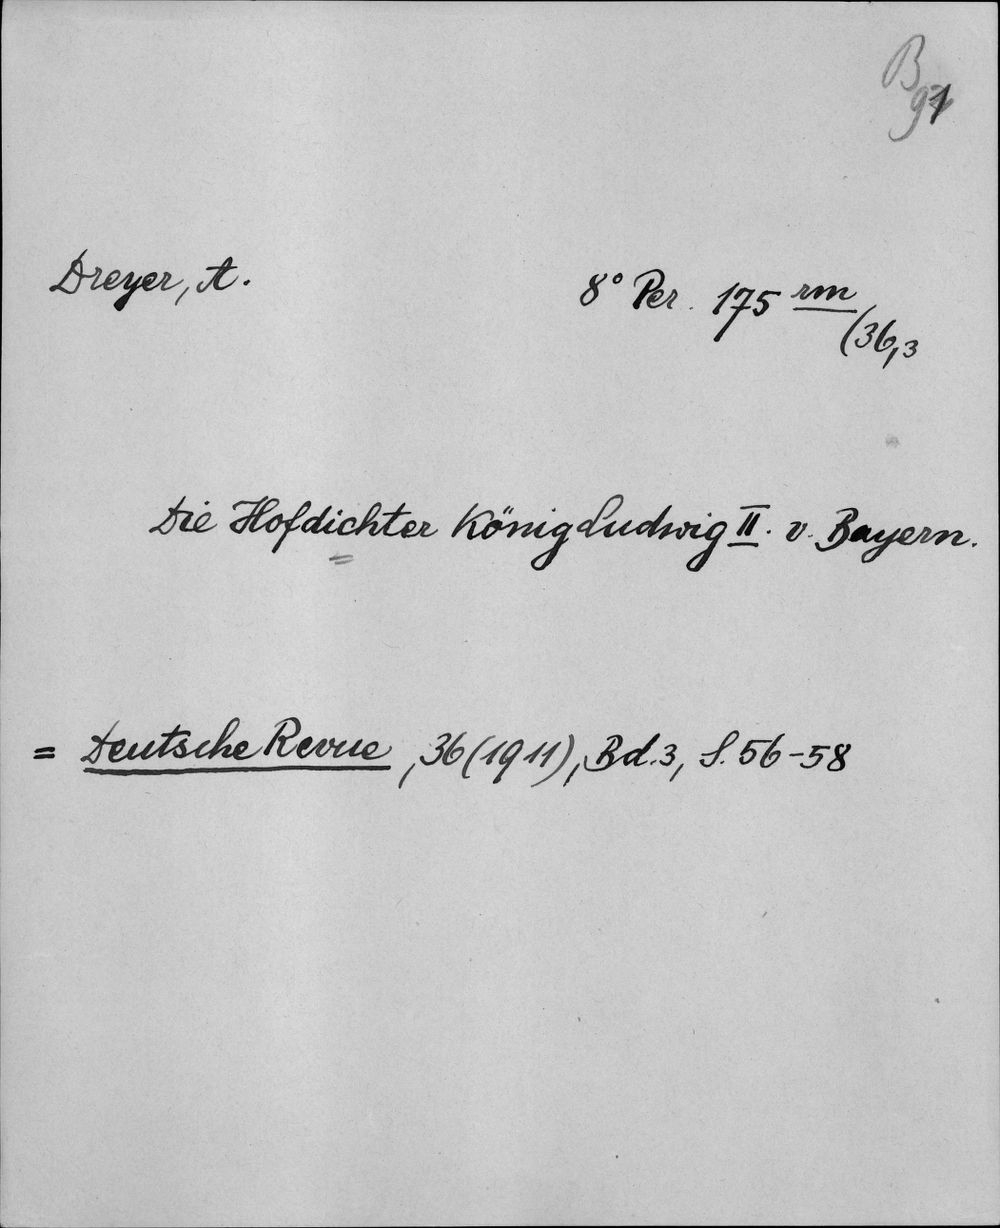 B
91
Dreyer, A.
8° Per. 175 rm
(36,3
Die Hofdichter König Ludwig II. v. Bayern.
= Deutsche Revue, 36 (1911), Bd. 3, S. 56-58